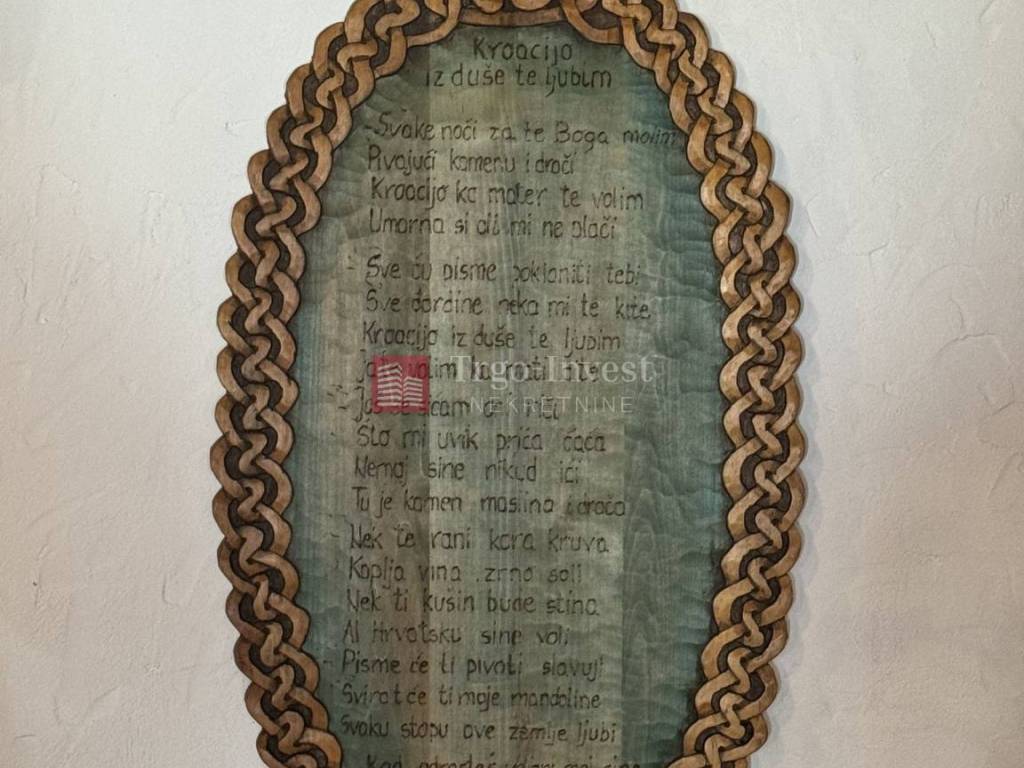 Kroacijo
iz duše te ljubim
- Svake noći za te Boga molim
Pivajući kamenu i drači
Kroacijo ka mater te volim
Umorna si ali mi ne plači
- Sve ću pisme pokloniti tebi
Sve đardine neka mi te kite
Kroacijo iz duše te ljubim
volim ka mati dite
Još se sićam
Što mi uvik priča ćaća
Nemoj sine nikud ići
Tu je kamen maslina i drača
- Nek te rani kora kruva
Kaplja vina zrno soli
Nek ti kušin bude stina
Al Hrvatsku sine voli
- Pisme će ti pivati slavuji
Svirat će ti moje mandoline
Svaku stopu ove zemlje ljubi
Kad
Trgo Invest
NEKRETNINE